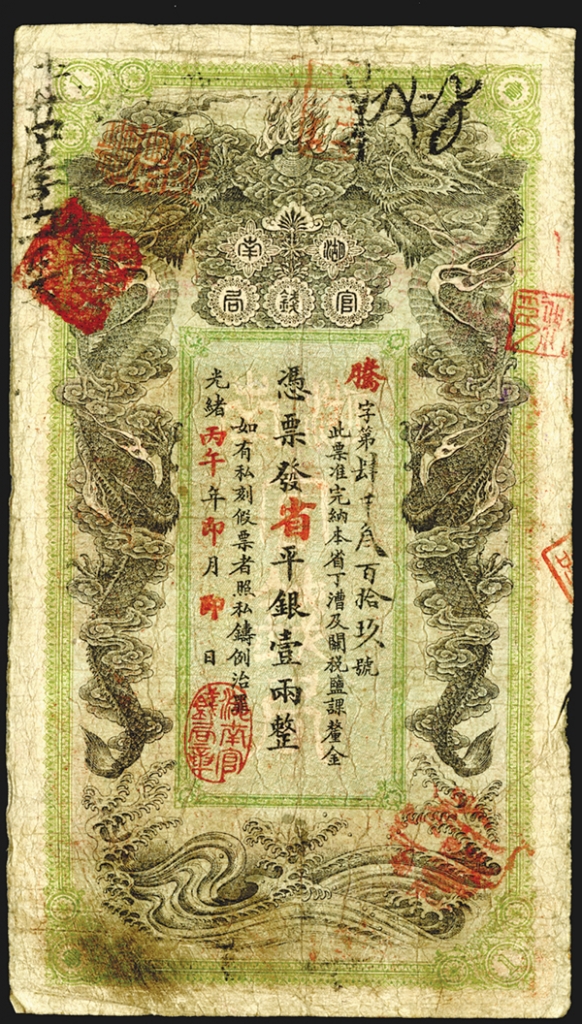 湖南
官錢局
騰字第肆千叁百拾玖號
此票准完納本省丁漕及關税鹽課釐金
憑票發省平銀壹兩整
如有私刻假票者照私鑄例治罪
光緒丙午年印月印日
湖南官
錢局章
1
1